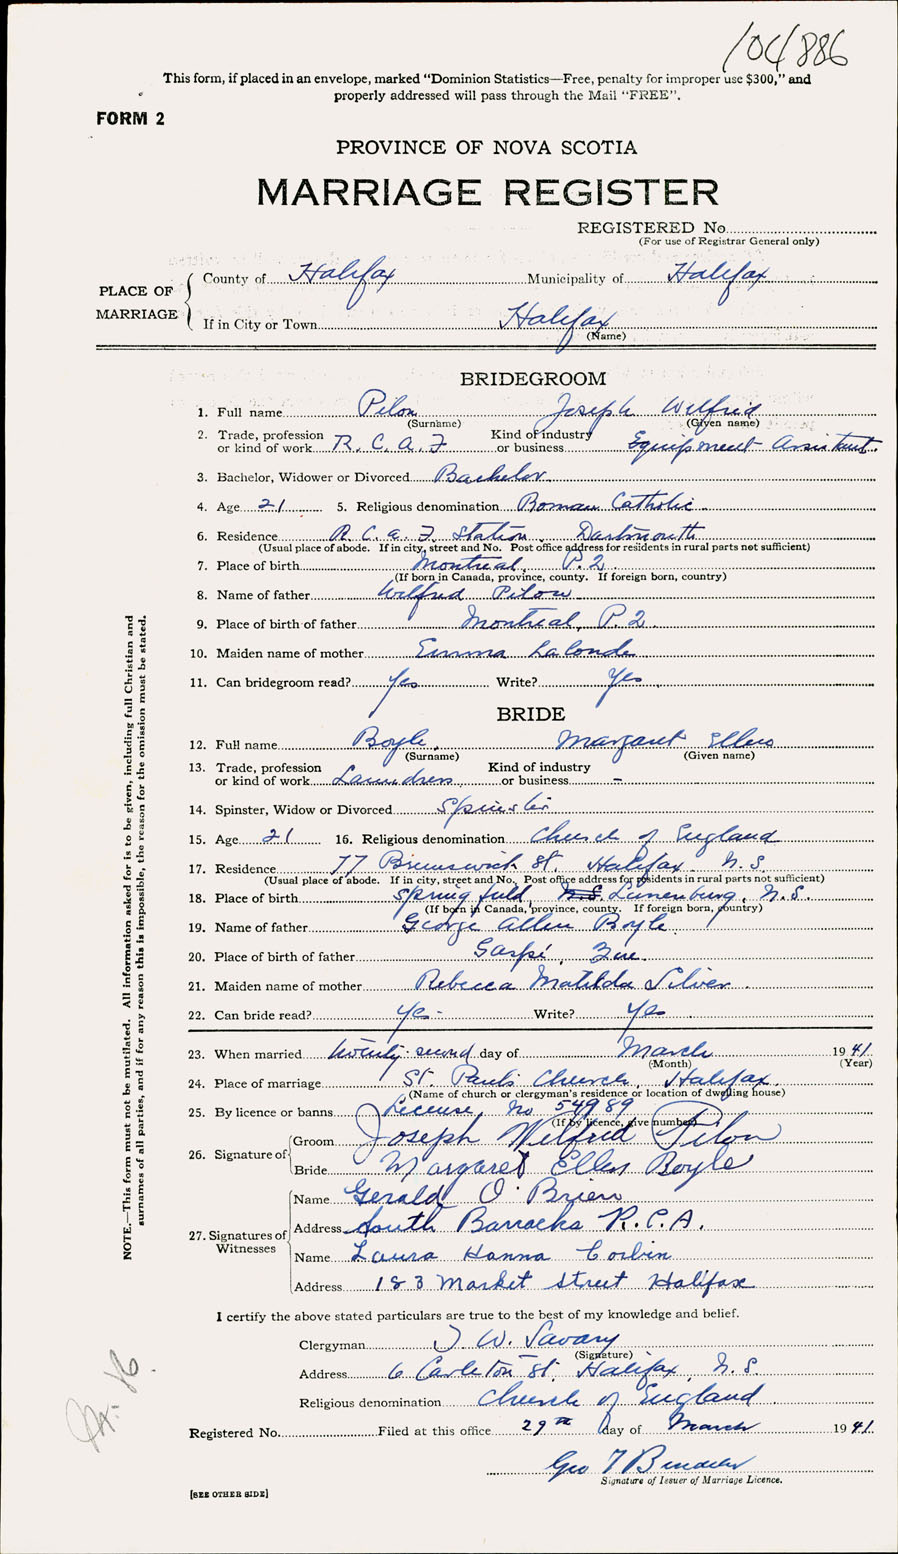 104886
This form, if placed in an envelope, marked "Dominion Statistics—Free, penalty for improper use $300," and
properly addressed will pass through the Mail "FREE".
FORM 2
PROVINCE OF NOVA SCOTIA
MARRIAGE REGISTER
REGISTERED No
(For use of Registrar General only)
PLACE OF MARRIAGE
County of Halifax Municipality of Halifax
If in City or Town Halifax
(Name)
BRIDEGROOM
1. Full name Pilon Joseph Wilfrid
(Surname) (Given name)
2. Trade, profession or kind of work R.C.A.F Kind of industry or business Equipment Assistant.
3. Bachelor, Widower or Divorced Bachelor
4. Age 21 5. Religious denomination Roman Catholic
6. Residence R.C.A.F. Station, Dartmouth
(Usual place of abode. If in city, street and No. Post office address for residents in rural parts not sufficient)
7. Place of birth Montreal, P.Q
(If born in Canada, province, county. If foreign born, country)
8. Name of father Wilfred Pilon
9. Place of birth of father Montreal, P.Q
10. Maiden name of mother Emma Lalonde
11. Can bridegroom read? Yes Write? Yes
BRIDE
12. Full name Boyle, Margaret Ellen
(Surname) (Given name)
13. Trade, profession or kind of work Laundress Kind of industry or business -
14. Spinster, Widow or Divorced Spinster
15. Age 21 16. Religious denomination Church of England
17. Residence 77 Brunswick St. Halifax N.S.
(Usual place of abode. If in city, street and No. Post office address for residents in rural parts not sufficient)
18. Place of birth Springfield, N.S. Lunenburg, N.S.
(If born in Canada, province, county. If foreign born, country)
19. Name of father George Allen Boyle
20. Place of birth of father Gaspé, Que.
21. Maiden name of mother Rebecca Matilda Silver
22. Can bride read? Yes - Write? Yes
23. When married twenty-second day of March 1941
(Month) (Year)
24. Place of marriage St. Paul's Church, Halifax.
(Name of church or clergyman's residence or location of dwelling house)
25. By licence or banns License, No 54989
(If by licence, give number)
26. Signature of
Groom Joseph Wilfrid Pilon
Bride Margaret Ellen Boyle
27. Signatures of Witnesses
Name Gerald O'Brien
Address South Barracks R.C.A.
Name Laura Hanna Corbin
Address 183 Market Street Halifax
I certify the above stated particulars are true to the best of my knowledge and belief.
Clergyman J W. Savary
(Signature)
Address 6 Carleton St. Halifax, N.S
Religious denomination Church of England
Registered No. Filed at this office 29th day of March 1941
Geo
Signature of Issuer of Marriage Licence.
[SEE OTHER SIDE]
NOTE.—This form must not be mutilated. All information asked for is to be given, including full Christian and
surnames of all parties, and if for any reason this is impossible, the reason for the omission must be stated.